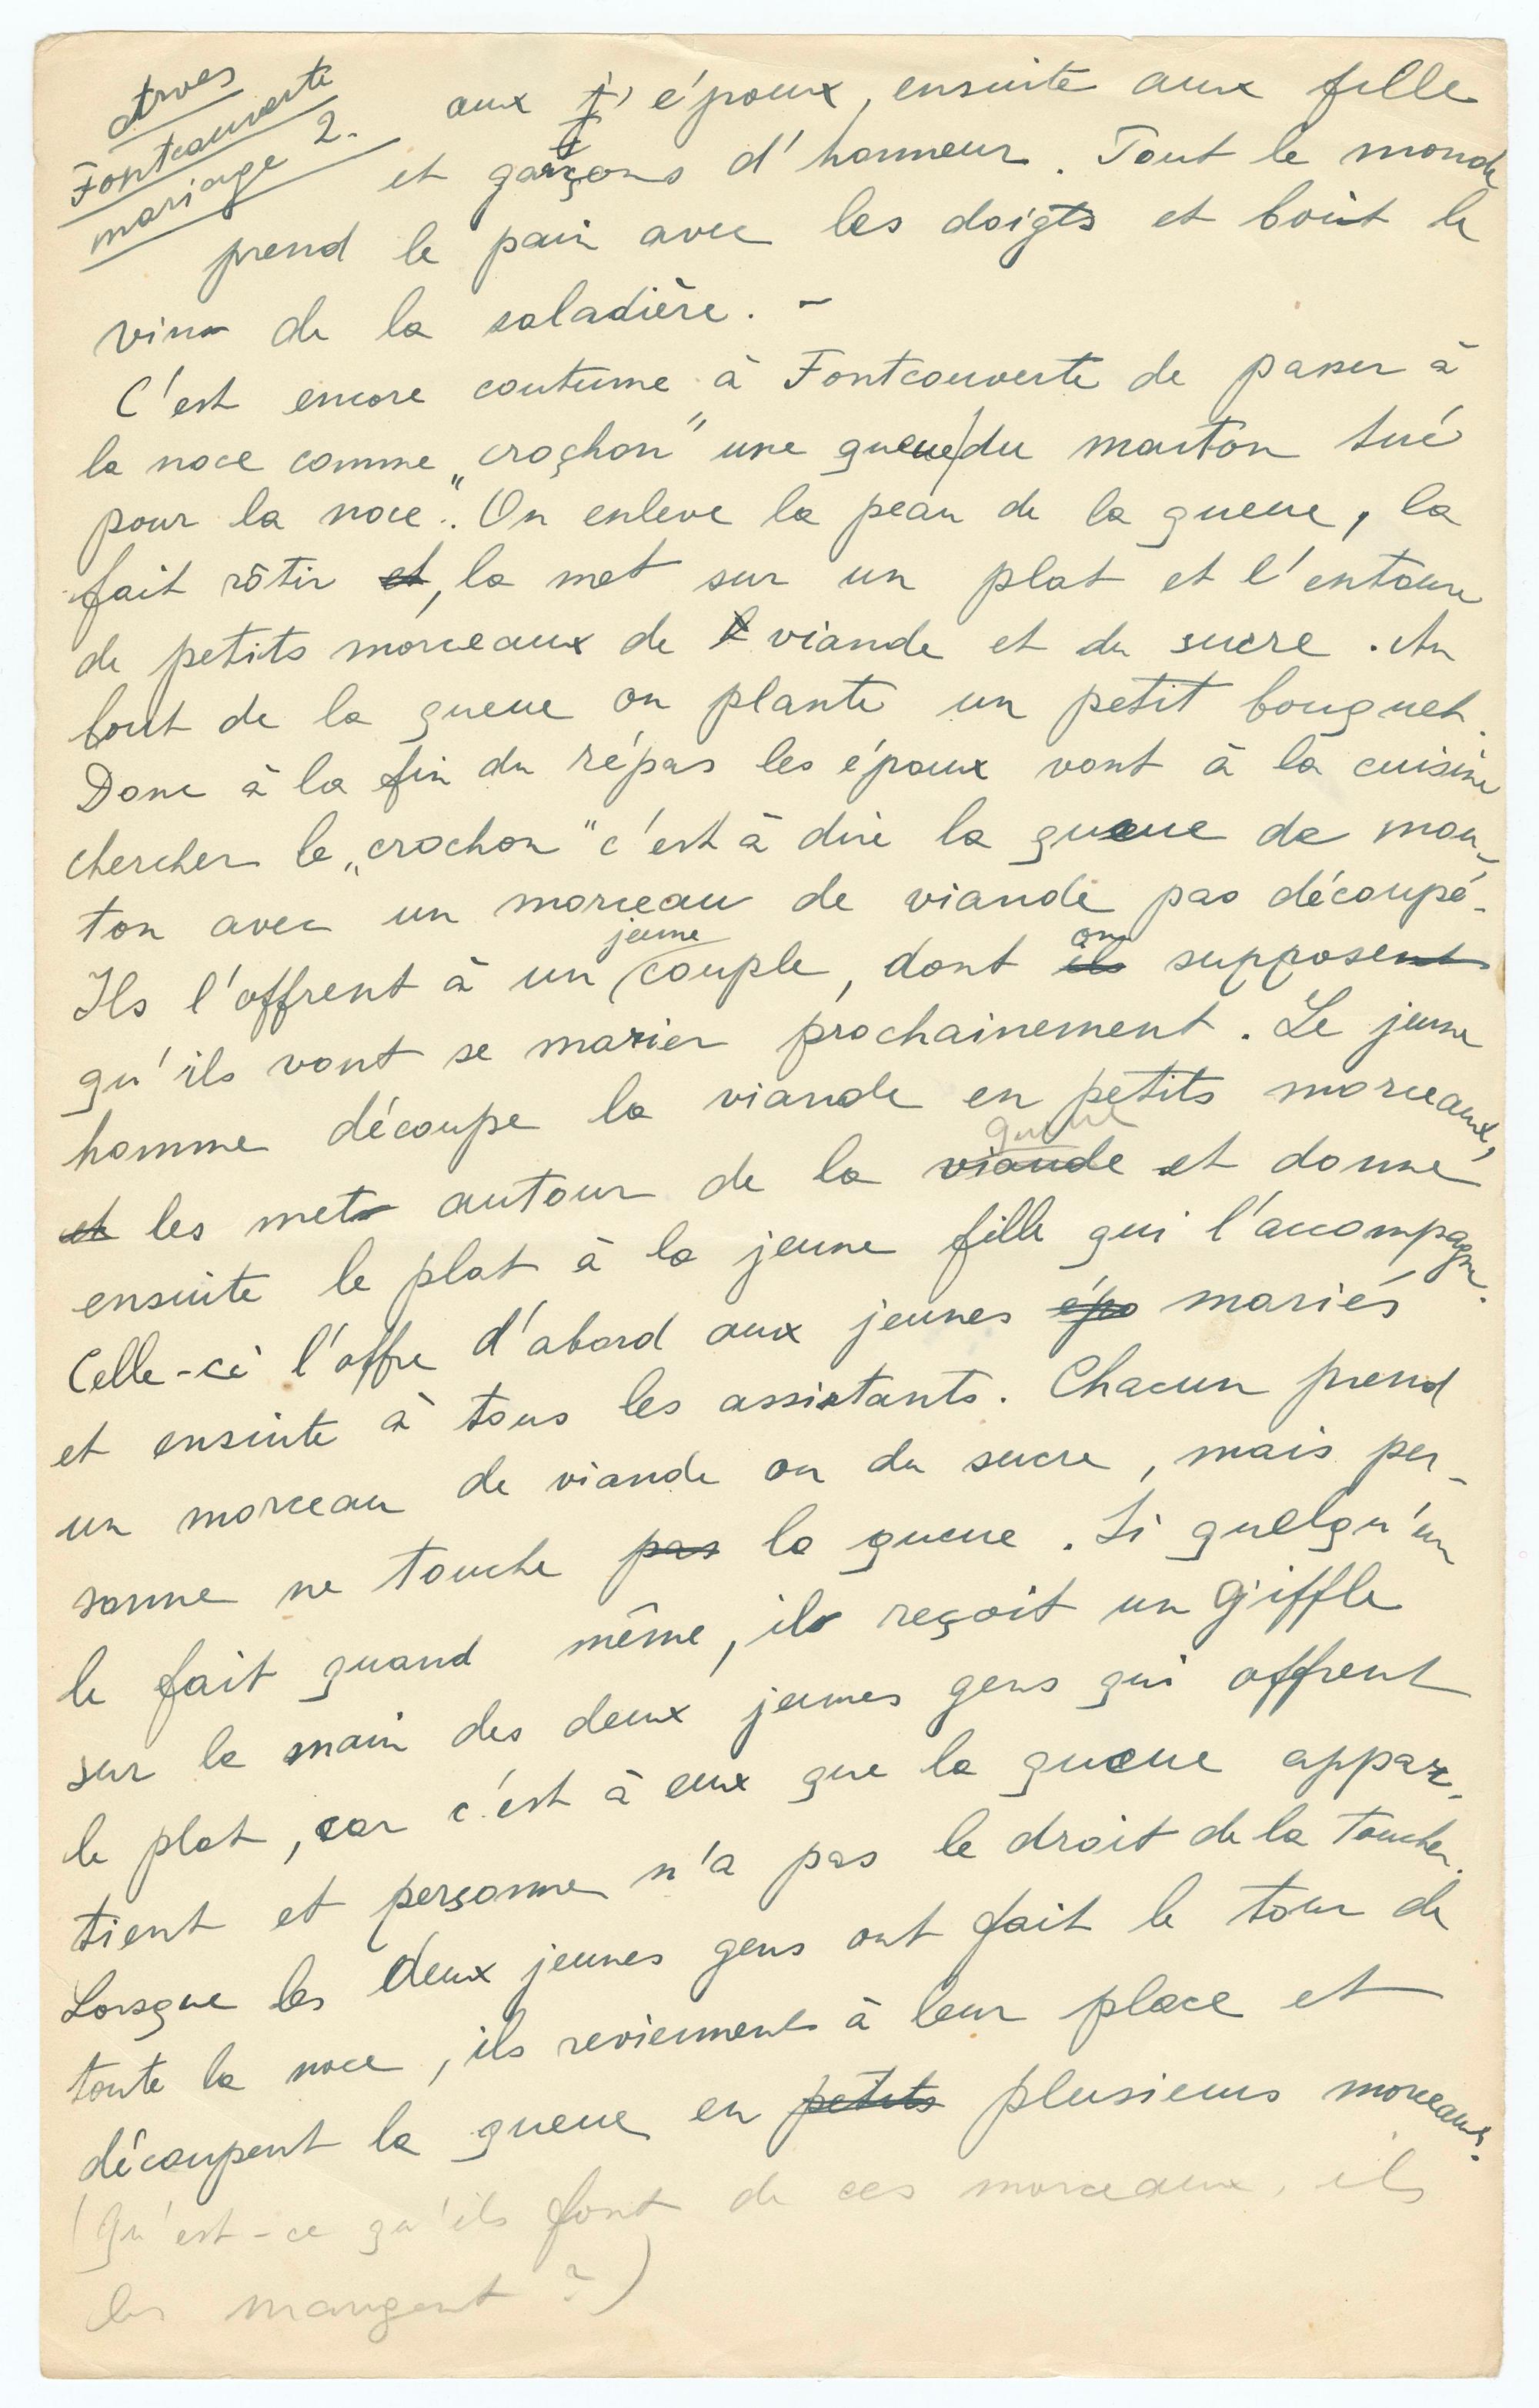 Arves
Fontcouverte
mariage 2.
aux époux, ensuite aux fille
et garçons d'honneur. Tout le monde
prend le pain avec les doigts et boit le
vin de la saladière. –
C'est encore coutume à Fontcouverte de passer à
la noce comme „crochon" une queue du mouton tué
pour la noce". On enleve la peau de la queue, la
fait rôtir et, la met sur un plat et l'entoure
de petits morceaux de viande et du sucre. Au
bout de la queue on plante un petit bouquet.
Donc à la fin du répas les époux vont à la cuisine
chercher le „crochon" c'est à dire la queue de mou-
ton avec un morceau de viande pas découpé.
Ils l'offrent à un jeune couple, dont ils on supposent
qu'ils vont se marier prochainement. Le jeune
homme découpe la viande en petits morceaux,
et les met autour de la viande queue et donne
ensuite le plat à la jeune fille qui l'accompagne.
Celle-ci l'offre d'abord aux jeunes épo mariés
et ensuite à tous les assistants. Chacun prend
un morceau de viande ou du sucre, mais per-
sonne ne touche pas la queue. Si quelqu'un
le fait quand même, il reçoit un giffle
sur la main des deux jeunes gens qui offrent
le plat, car c'est à eux que la queue appar-
tient et personne n'a pas le droit de la toucher.
Lorsque les deux jeunes gens ont fait le tour de
toute la noce, ils reviennent à leur place et
découpent la queue en petits plusieurs morceaux.
(Qu'est-ce qu'ils font de ces morceaux, ils
les mangent ?)